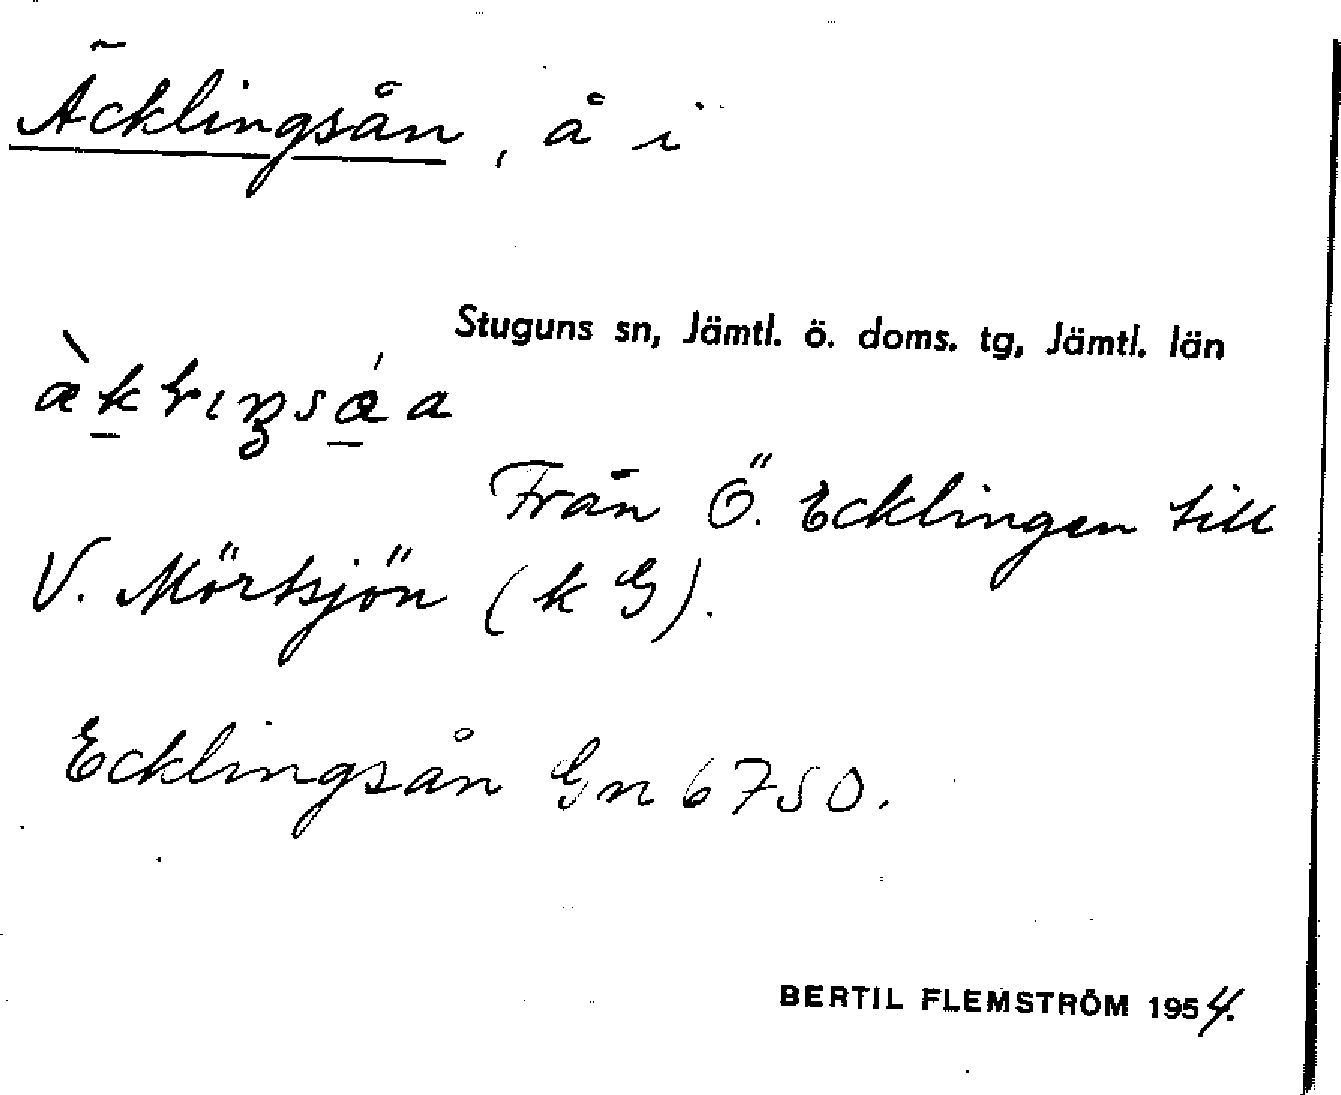 Äcklingsån, å i
Stuguns sn, Jämtl. ö. doms. tg, Jämtl. län
Från Ö. Ecklingen till
V. Mörtsjön (k G).
Ecklingsån Gn 6750.
BERTIL FLEMSTRÖM 1954.